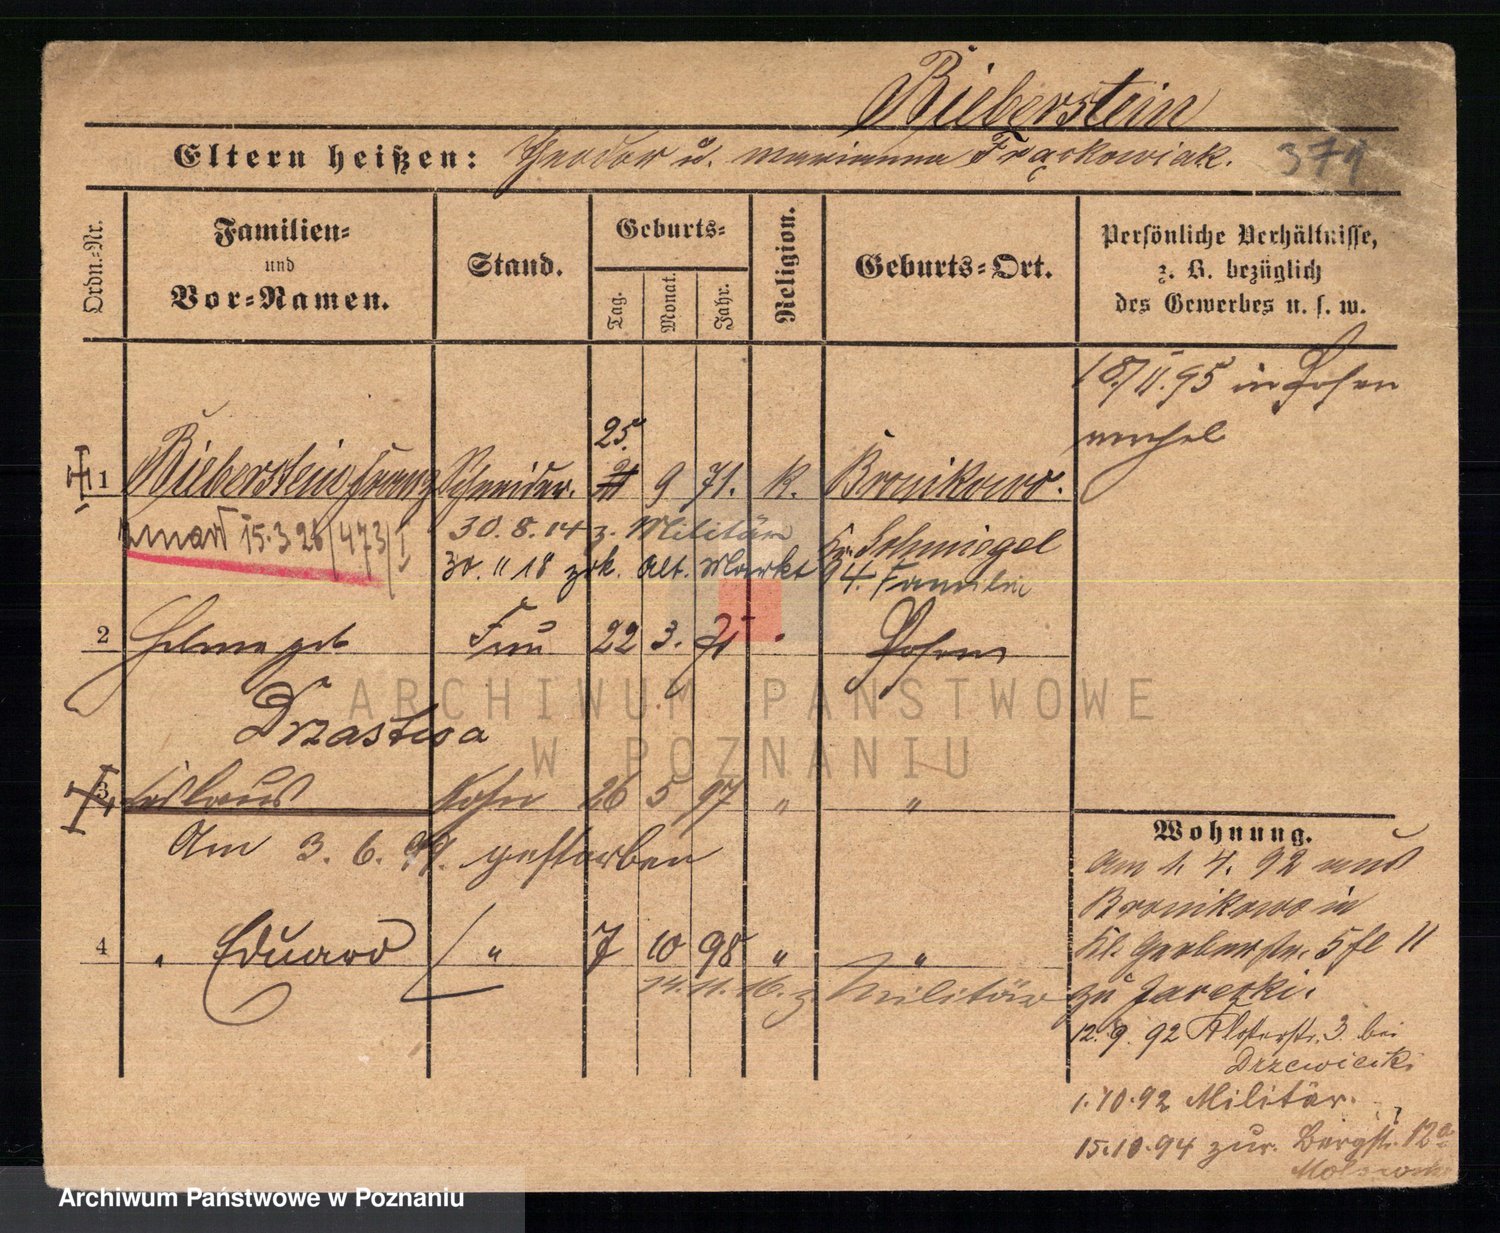 Bieberstein
Eltern heißen: Theodor u. Marianna Frąckowiak. 379
Ordn.-Nr.
Familien-
und
Vor-Namen.
Stand.
Geburts-
Tag.
Monat.
Jahr.
Religion.
Geburts-Ort.
Persönliche Verhältnisse,
z. B. bezüglich
des Gewerbes u. s. w.
18/II.95 in Posen
25.
1 Bieberstein Franz Schneider. 9 71. K. Bronikowo.
zmarł 15.3.26/473/I
30.8.14 z. Militär Kr. Schmiegel
30. 11 18 zrk. Alt. Markt 94. Familie
2 geb Frau 22 3. " Posen
Drzastwa
3 Sohn 26 5 97 " "
Am 3. 6. 97. gestorben
4 " Eduard " 7 10 98 " "
14.11.16. z. Militär
Wohnung.
Am 1. 4. 92 aus
Bronikowo in
Kl. Gerberstr. 5 fl II
zu Jarecki.
12.9.92 Klosterstr. 3 bei
Drzewiecki
1.10.92 Militär.
15.10.94 zur. Bergstr. 12a
ARCHIWUM PAŃSTWOWE
W POZNANIU
Archiwum Państwowe w Poznaniu